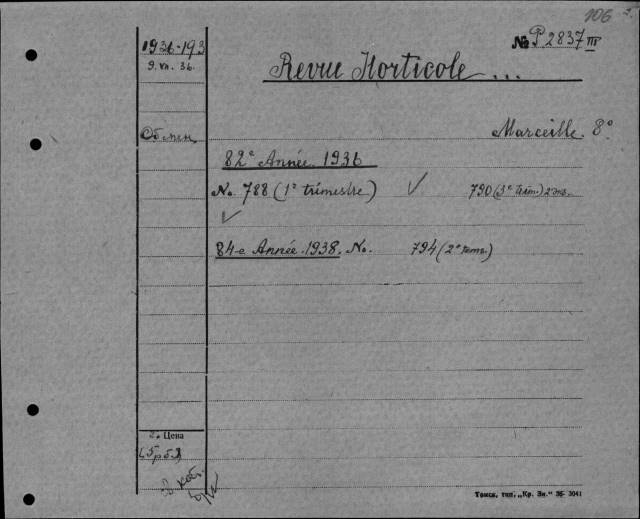 106
1936-193
№ P 2837 III
9. VII. 36.
Revue Horticole ...
Обмен
Marceille. 8°
82e Année 1936
No. 788 (1e trimestre) ✓ 790 (3e trim.) 2 экз.
✓
84-e Année 1938. No. 794 (2e tem.)
Цена
(5р53)
Томск, тип. „Кр. Зн." 36- 3041